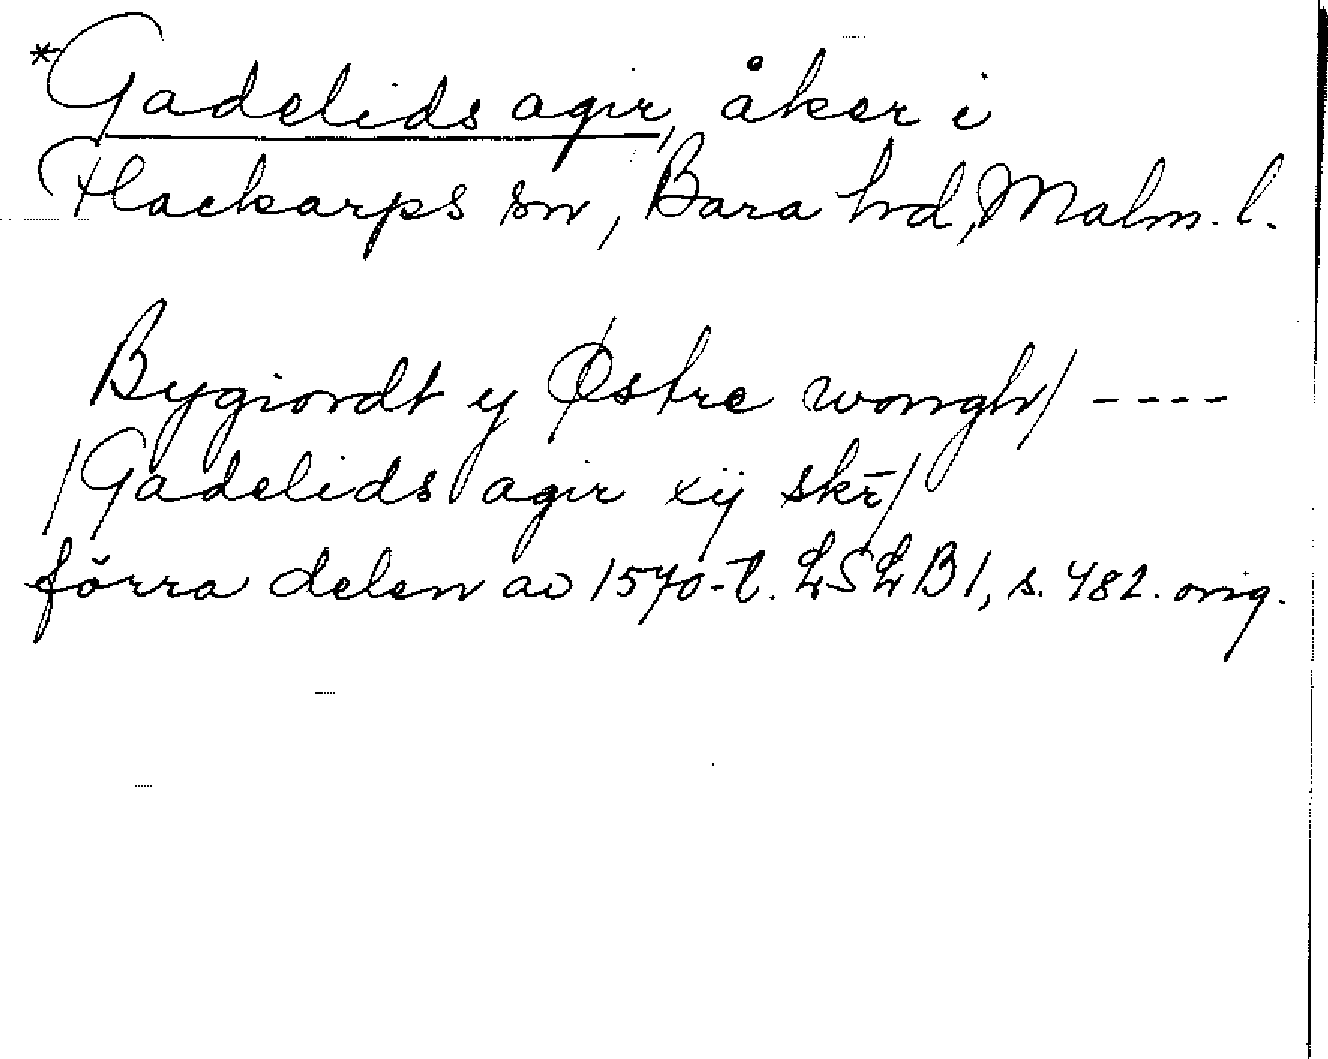 *Gadelids agir, åker i
Flackarps sn, Bara hd, Malm. l.
Bygiordt y Østre wongh/ ----
/Gadelids agir xij skr̄/
förra delen av 1570-t. LSLB1, s. 482. orig.